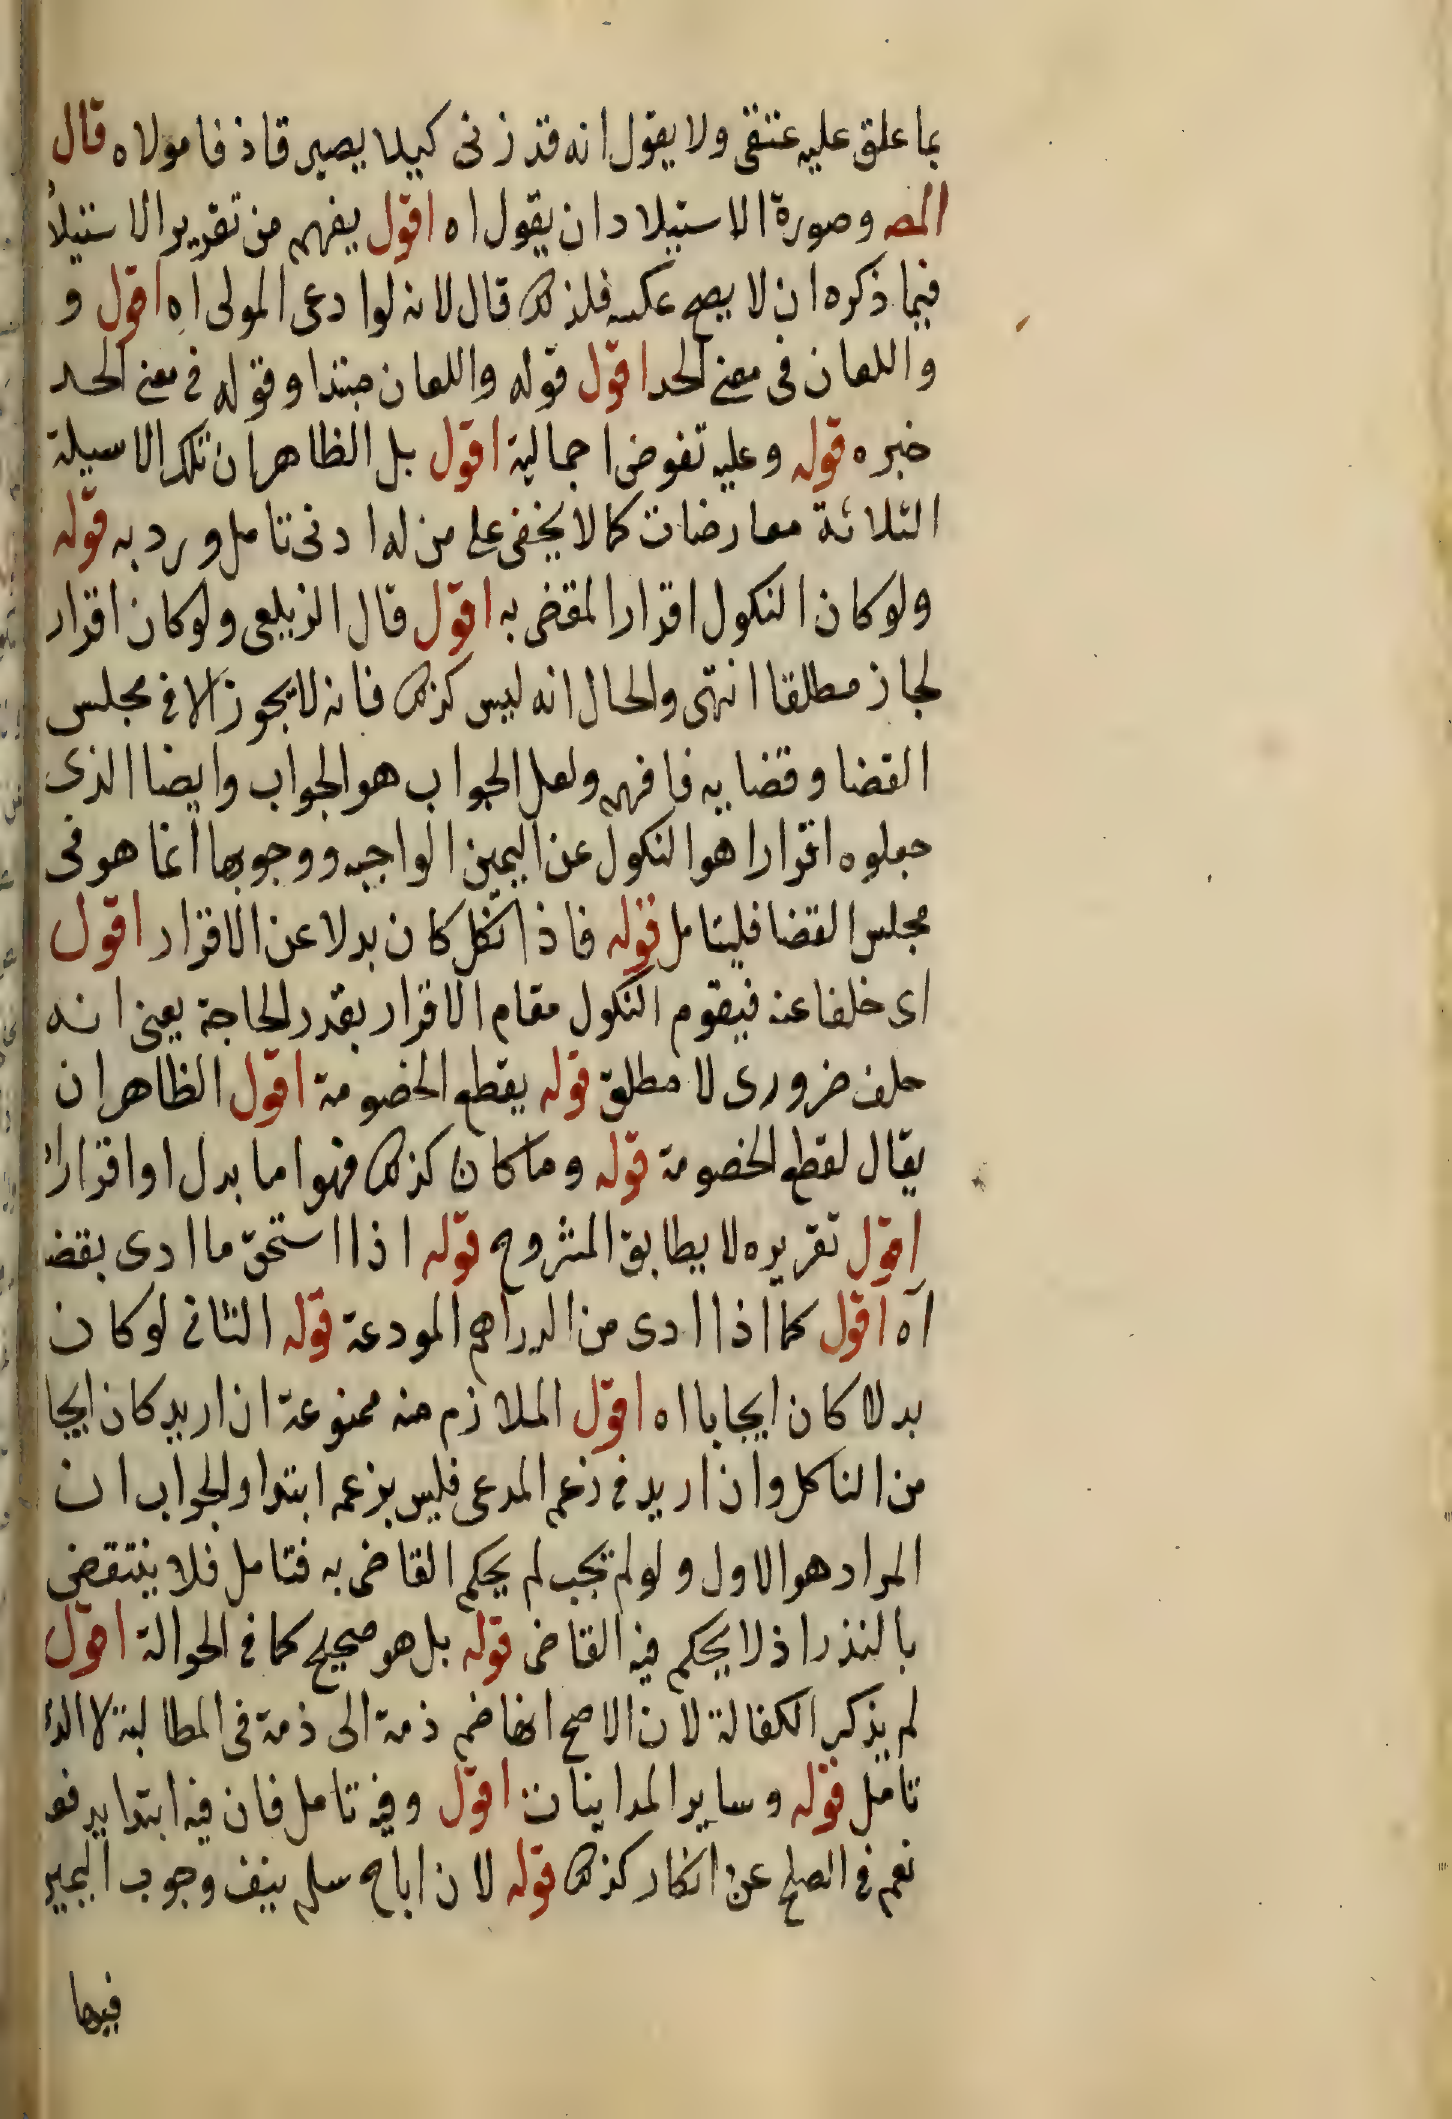 بما علق عليه عتقى ولا يقول انه قد زنى كيلا يصير قاذفا مولاه قال
المص وصورة الاستيلاد ان يقول اه اقول يفهم من تقرير الاستيلا
فيما ذكره ان لا يصح عكسه فلذلك قال لانه لو ادعى المولى اه اقول و
واللعان فى معنى الحد اقول قوله واللعان مبتدا وقوله فى معنى الحد
خبره قوله وعليه تقوض اجمالية اقول بل الظاهر ان تلك الاسيلة
الثلاثة معارضات كما لا يخفى على من له ادنى تامل ورد به قوله
ولو كان النكول اقرارا لمقضى به اقول قال الزيلعى ولو كان اقرار
لجاز مطلقا انتهى والحال انه ليس كذلك فانه لا يجوز الا فى مجلس
القضا وقضا به فافهم ولعل الجواب هو الجواب وايضا الذى
جعلوه اقرارا هو النكول عن اليمين الواجبه ووجوبها انما هو فى
مجلس القضا فليتامل قوله فاذا نكل كان بدلا عن الاقرار اقول
اى خلفا عنه فيقوم النكول مقام الاقرار بقدر الحاجة يعنى انه
خلف ضرورى لا مطلق قوله يقطع الخصومة اقول الظاهر ان
يقال لقطع الخصومة قوله وما كان كذلك فهو اما بدل او اقرارا
اقول تقريره لا يطابق المشروح قوله اذا استحق ما ادى بقض
اه اقول كما اذا ادى من الدراهم المودعة قوله الثانى لو كان
بدلا كان ايجابا اه اقول الملازم منه ممنوعة ان اريد كان ايجا
من الناكل وان اريد فى زعم المدعى فليس بزعمه ابتدا والجواب ان
المراد هو الاول ولو لم يجب لم يحكم القاضى به فتامل فلا ينتقض
بالنذر اذ لا يحكم فيه القاضى قوله بل هو صحيح كما فى الحوالة اقول
لم يذكر الكفالة لان الاصح انها ضم ذمة الى ذمة فى المطالبة لا الد
تامل قوله وساير المداينات اقول وفيه تامل فان فيه ابتدا يدفع
نعم فى الصلح عن انكار كذلك قوله لان اباح سلم ينف وجوب اليمير
فيها